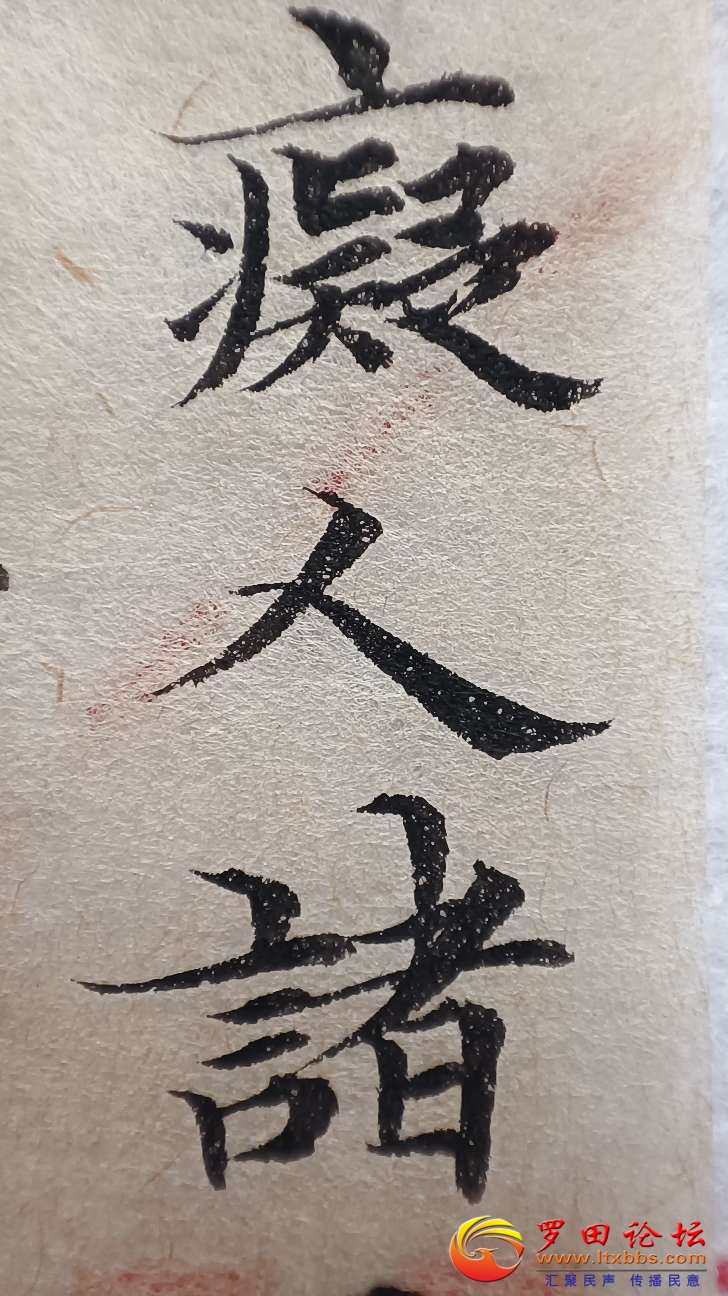 癡人諸
罗田论坛
www.ltxbbs.com
汇聚民声 传播民意